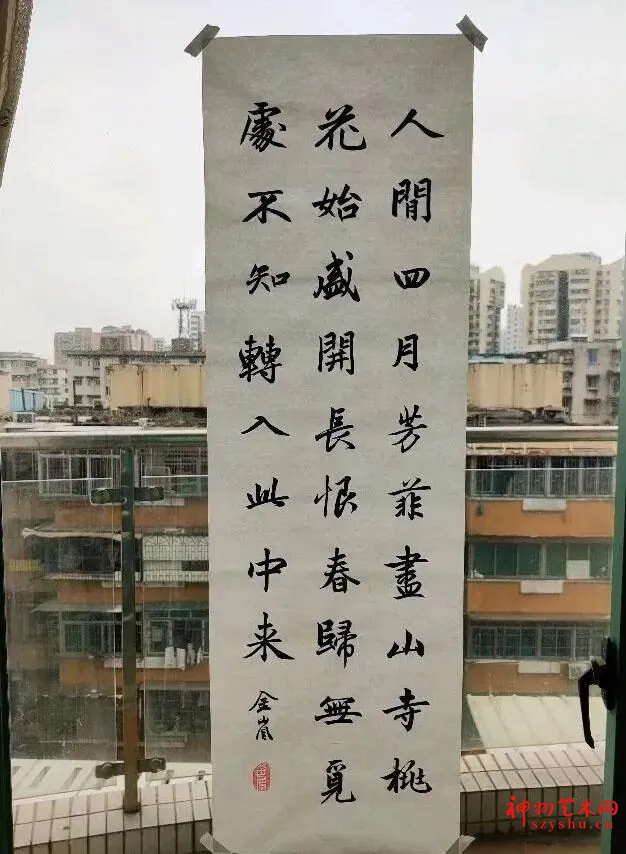 人間四月芳菲盡山寺桃
花始盛開長恨春歸無覓
處不知轉入此中来
金嵐
神州艺术网
szyshu.cn